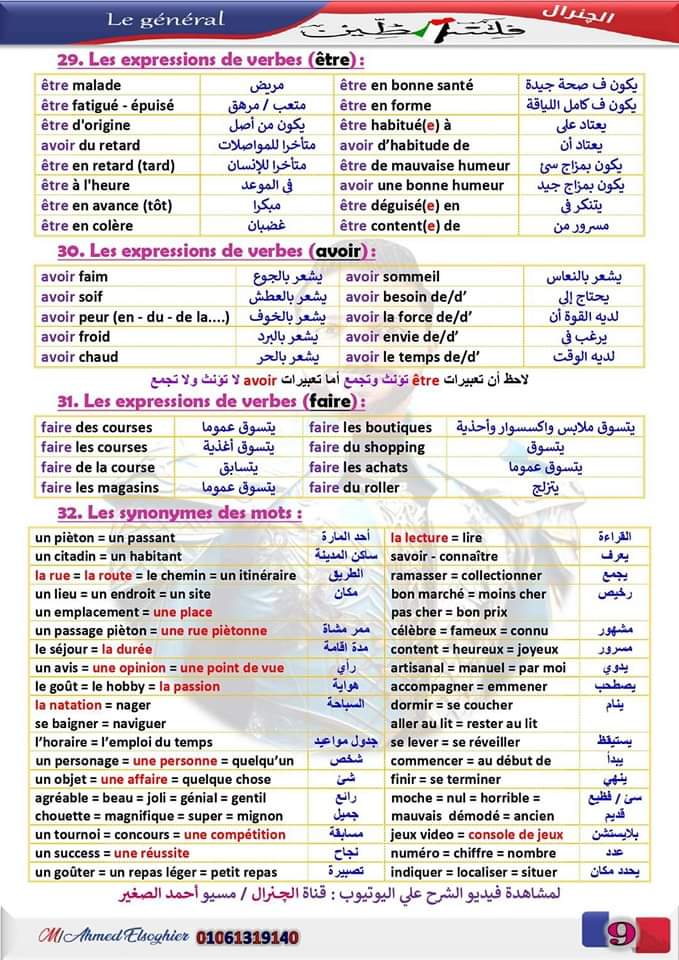 Le général
فلسطين
الچنرال
29. Les expressions de verbes (être) :
être malade مريض être en bonne santé يكون ف صحة جيدة
être fatigué - épuisé متعب / مرهق être en forme يكون ف كامل اللياقة
être d'origine يكون من أصل être habitué(e) à يعتاد على
avoir du retard متأخرا للمواصلات avoir d'habitude de يعتاد أن
être en retard (tard) متأخرا للإنسان être de mauvaise humeur يكون بمزاج سئ
être à l'heure في الموعد avoir une bonne humeur يكون بمزاج جيد
être en avance (tôt) مبكرا être déguisé(e) en يتنكر في
être en colère غضبان être content(e) de مسرور من
30. Les expressions de verbes (avoir) :
avoir faim يشعر بالجوع avoir sommeil يشعر بالنعاس
avoir soif يشعر بالعطش avoir besoin de/d' يحتاج إلى
avoir peur (en - du - de la....) يشعر بالخوف avoir la force de/d' لديه القوة أن
avoir froid يشعر بالبرد avoir envie de/d' يرغب في
avoir chaud يشعر بالحر avoir le temps de/d' لديه الوقت
لاحظ أن تعبيرات être تؤنث وتجمع أما تعبيرات avoir لا تؤنث ولا تجمع
31. Les expressions de verbes (faire) :
faire des courses يتسوق عموما faire les boutiques يتسوق ملابس واكسسوار وأحذية
faire les courses يتسوق أغذية faire du shopping يتسوق
faire de la course يتسابق faire les achats يتسوق عموما
faire les magasins يتسوق عموما faire du roller يتزلج
32. Les synonymes des mots :
un pièton = un passant أحد المارة la lecture = lire القراءة
un citadin = un habitant ساكن المدينة savoir - connaître يعرف
la rue = la route = le chemin = un itinéraire الطريق ramasser = collectionner يجمع
un lieu = un endroit = un site مكان bon marché = moins cher رخيص
un emplacement = une place pas cher = bon prix
un passage pièton = une rue piètonne ممر مشاة célèbre = fameux = connu مشهور
le séjour = la durée مدة اقامة content = heureux = joyeux مسرور
un avis = une opinion = une point de vue رأي artisanal = manuel = par moi يدوي
le goût = le hobby = la passion هواية accompagner = emmener يصطحب
la natation = nager السباحة dormir = se coucher ينام
se baigner = naviguer aller au lit = rester au lit
l'horaire = l'emploi du temps جدول مواعيد se lever = se réveiller يستيقظ
un personage = une personne = quelqu'un شخص commencer = au début de يبدأ
un objet = une affaire = quelque chose شئ finir = se terminer ينهي
agréable = beau = joli = génial = gentil رائع moche = nul = horrible = سئ / فظيع
chouette = magnifique = super = mignon جميل mauvais démodé = ancien قديم
un tournoi = concours = une compétition مسابقة jeux video = console de jeux بلايستشن
un success = une réussite نجاح numéro = chiffre = nombre عدد
un goûter = un repas léger = petit repas تصبيرة indiquer = localiser = situer يحدد مكان
لمشاهدة فيديو الشرح علي اليوتيوب : قناة الچنرال / مسيو أحمد الصغير
M/ Ahmed Elsoghier 01061319140
9